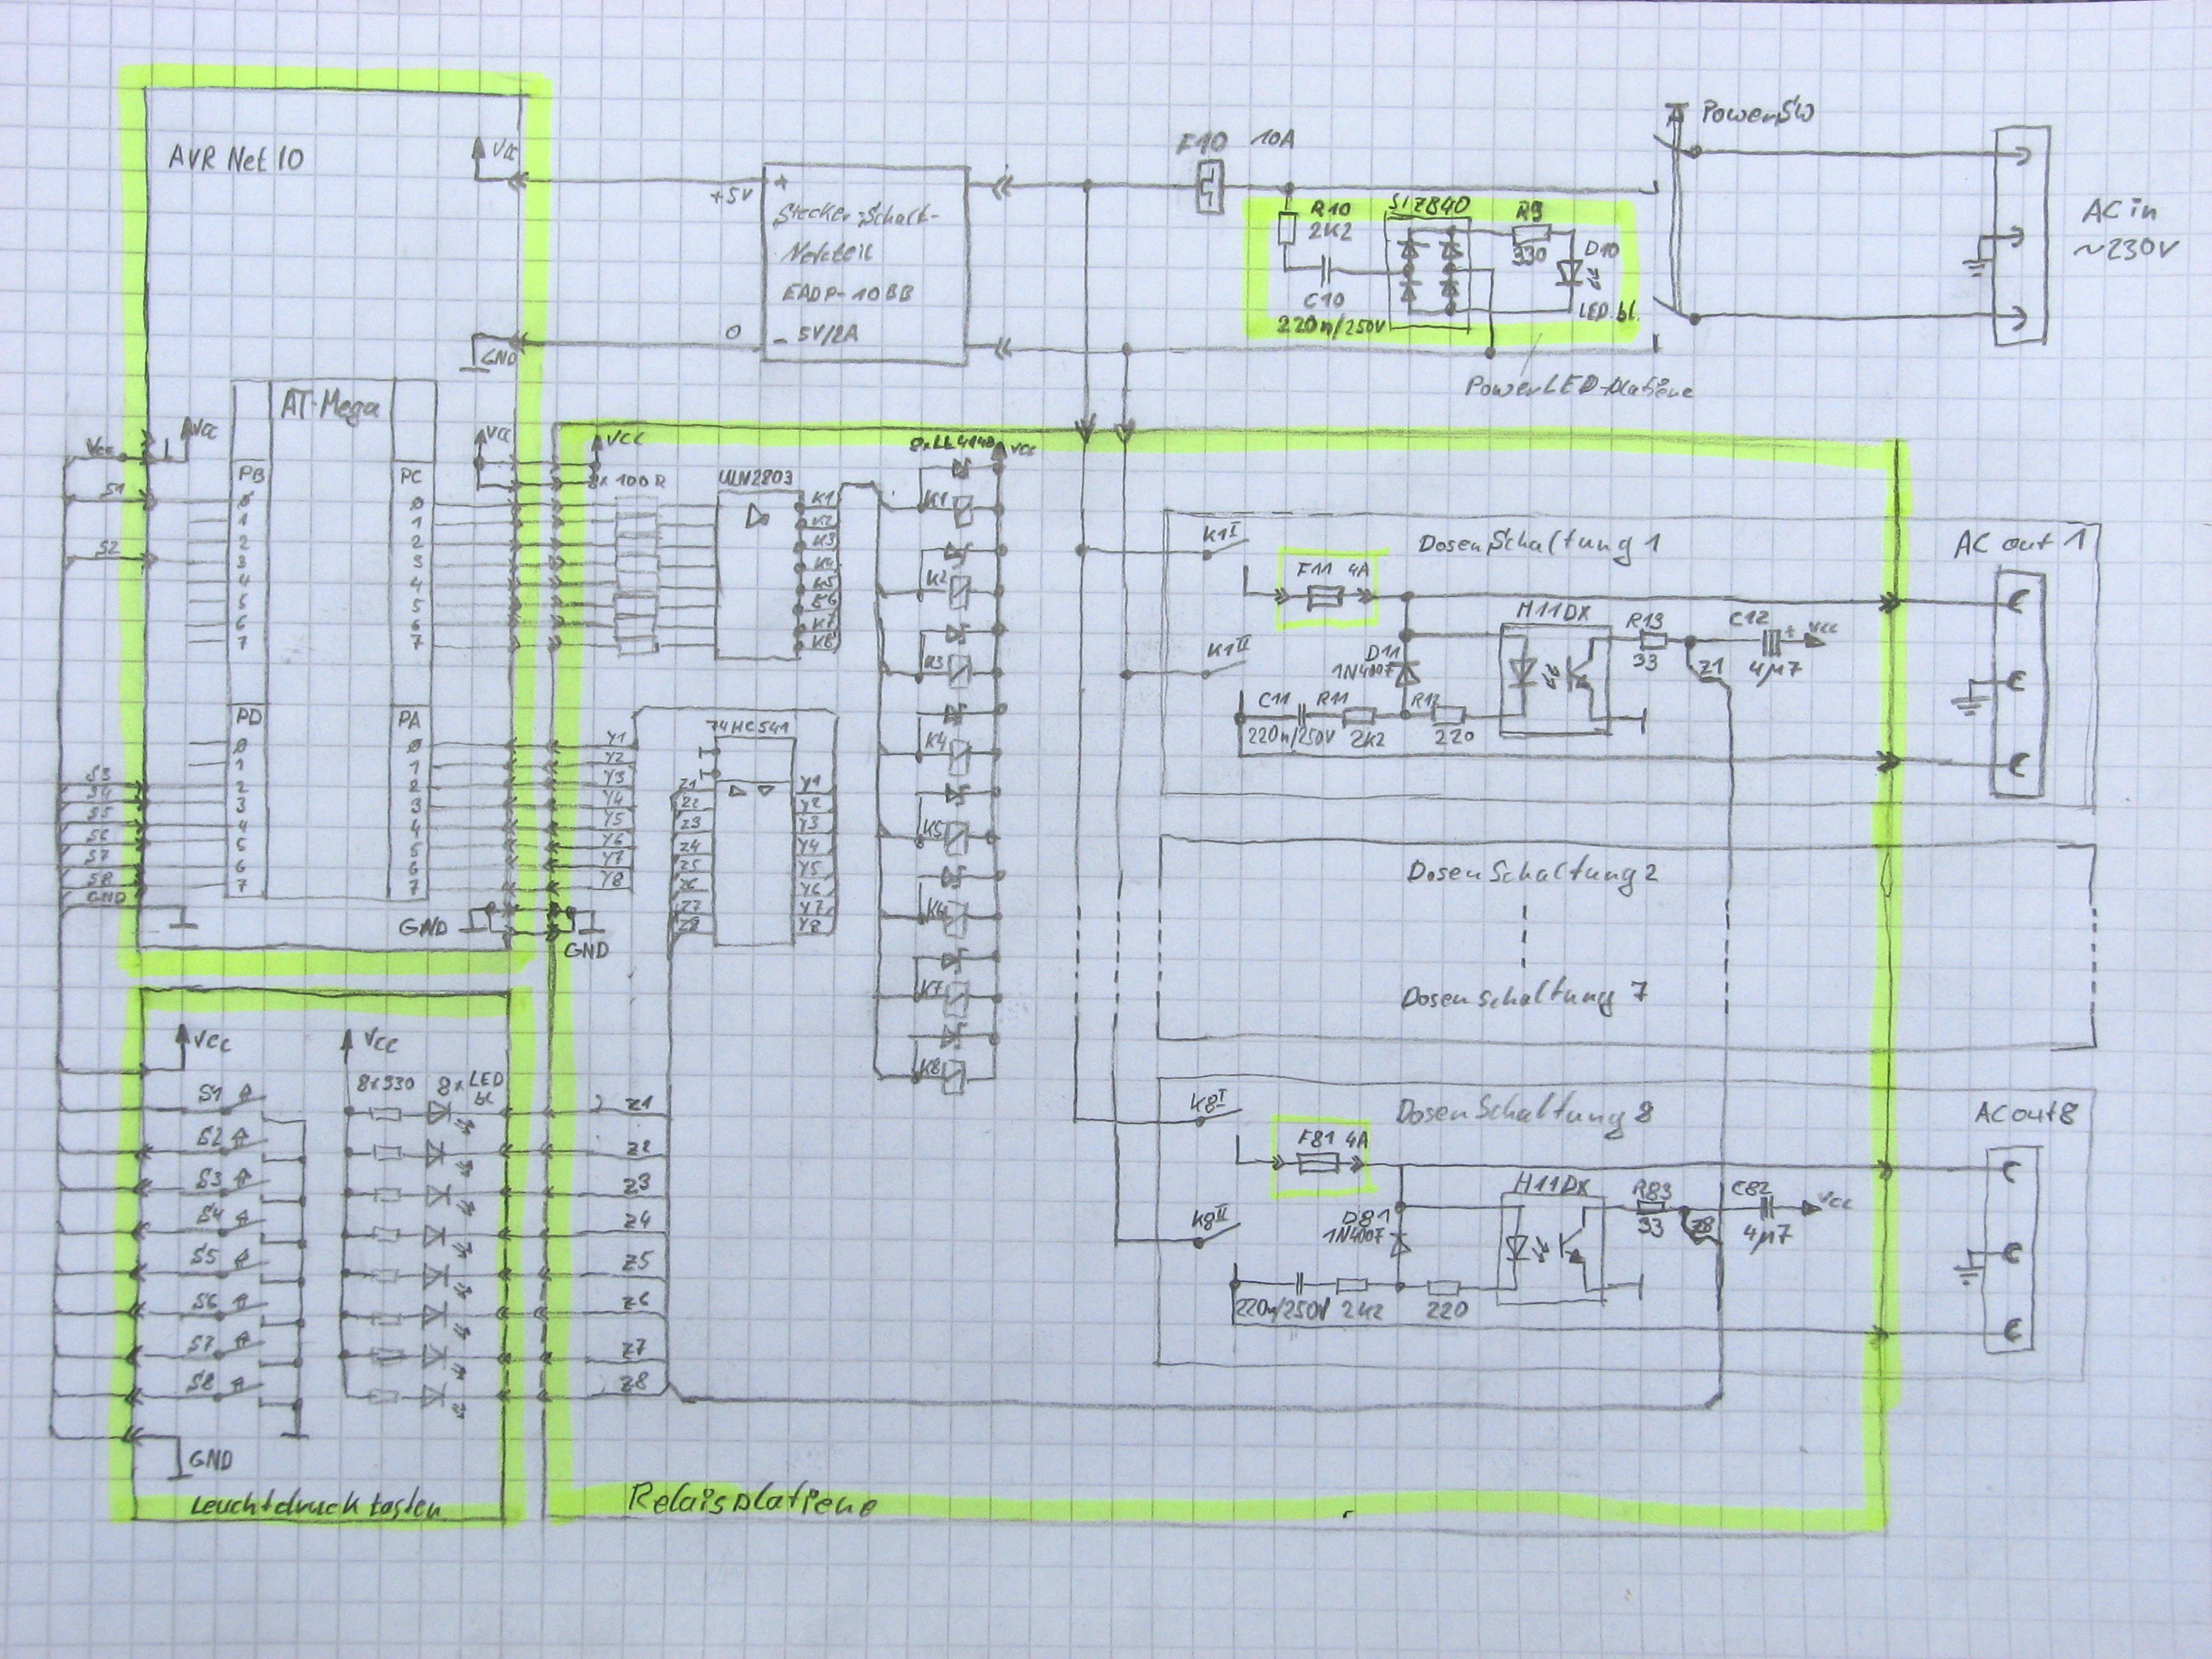 AVR Net IO
VCC
+5V
+
Stecker-Schalt-
Netzteil
EADP-10BB
- 5V/2A
0
GND
F10 10A
PowerSW
AC in
~230V
R10
2K2
C10
220n/250V
SIZ840
R9
330
D10
LED bl.
PowerLED-Platiene
AT-Mega
Vcc
VCC
S1
S2
PB
0
1
2
3
4
5
6
7
PC
0
1
2
3
4
5
6
7
VCC
VCC
8x 100R
ULN2803
K1
K2
K3
K4
K5
K6
K7
K8
8xLL4148
VCC
K1
K2
K3
K4
K5
K6
K7
K8
PD
0
1
2
3
4
5
6
7
PA
0
1
2
3
4
5
6
7
S3
S4
S5
S6
S7
S8
GND
GND
GND
Y1
Y2
Y3
Y4
Y5
Y6
Y7
Y8
74HC541
Z1
Z2
Z3
Z4
Z5
Z6
Z7
Z8
Y1
Y2
Y3
Y4
Y5
Y6
Y7
Y8
K1I
K1II
Dosen Schaltung 1
F11 4A
AC out 1
H11DX
R13
33
C12
+
4µ7
Vcc
Z1
D11
1N4007
C11
220n/250V
R11
2K2
R12
220
Dosen Schaltung 2
Dosen schaltung 7
K8I
K8II
Dosen Schaltung 8
F81 4A
AC out 8
H11DX
R83
33
C82
4µ7
Vcc
Z8
D81
1N4007
220n/250V
2K2
220
Vcc
Vcc
8x330
8x LED
bl
S1
S2
S3
S4
S5
S6
S7
S8
GND
Z1
Z2
Z3
Z4
Z5
Z6
Z7
Z8
Leuchtdruck tasten
Relaisplatiene